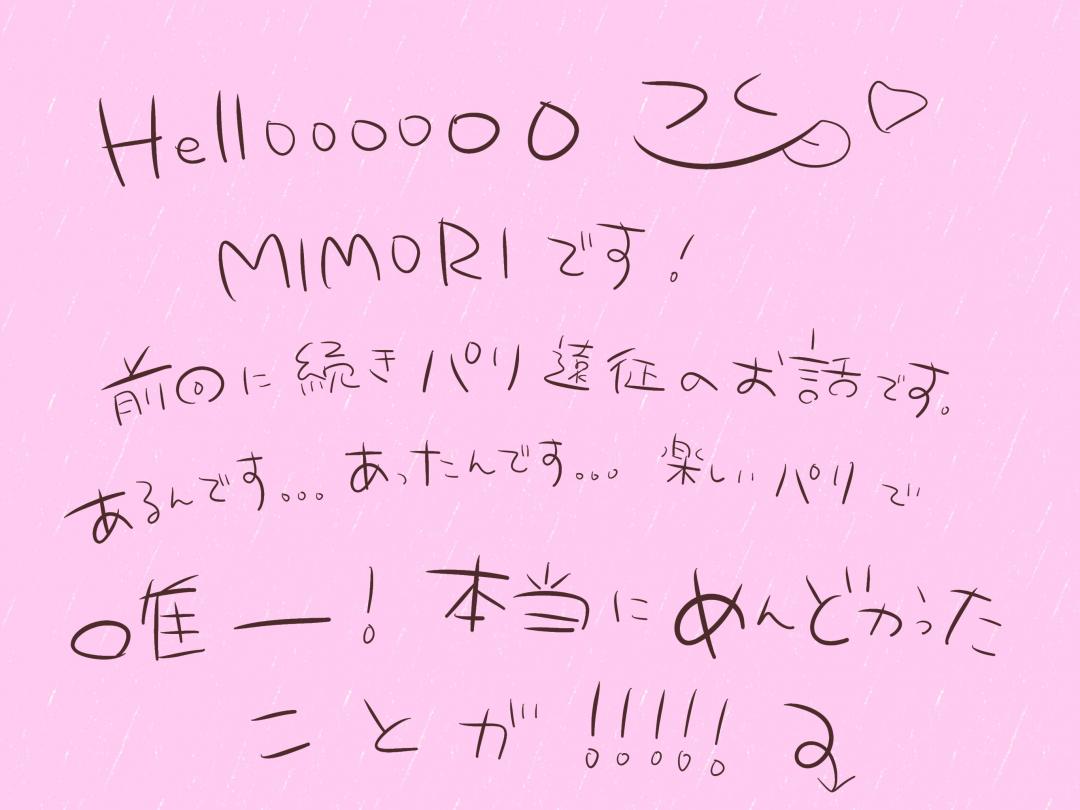 Hellooooooo
MIMORIです!
前回に続きパリ遠征のお話です。
あるんです... あったんです... 楽しいパリで
唯一! 本当にめんどかった
ことが!!!!!